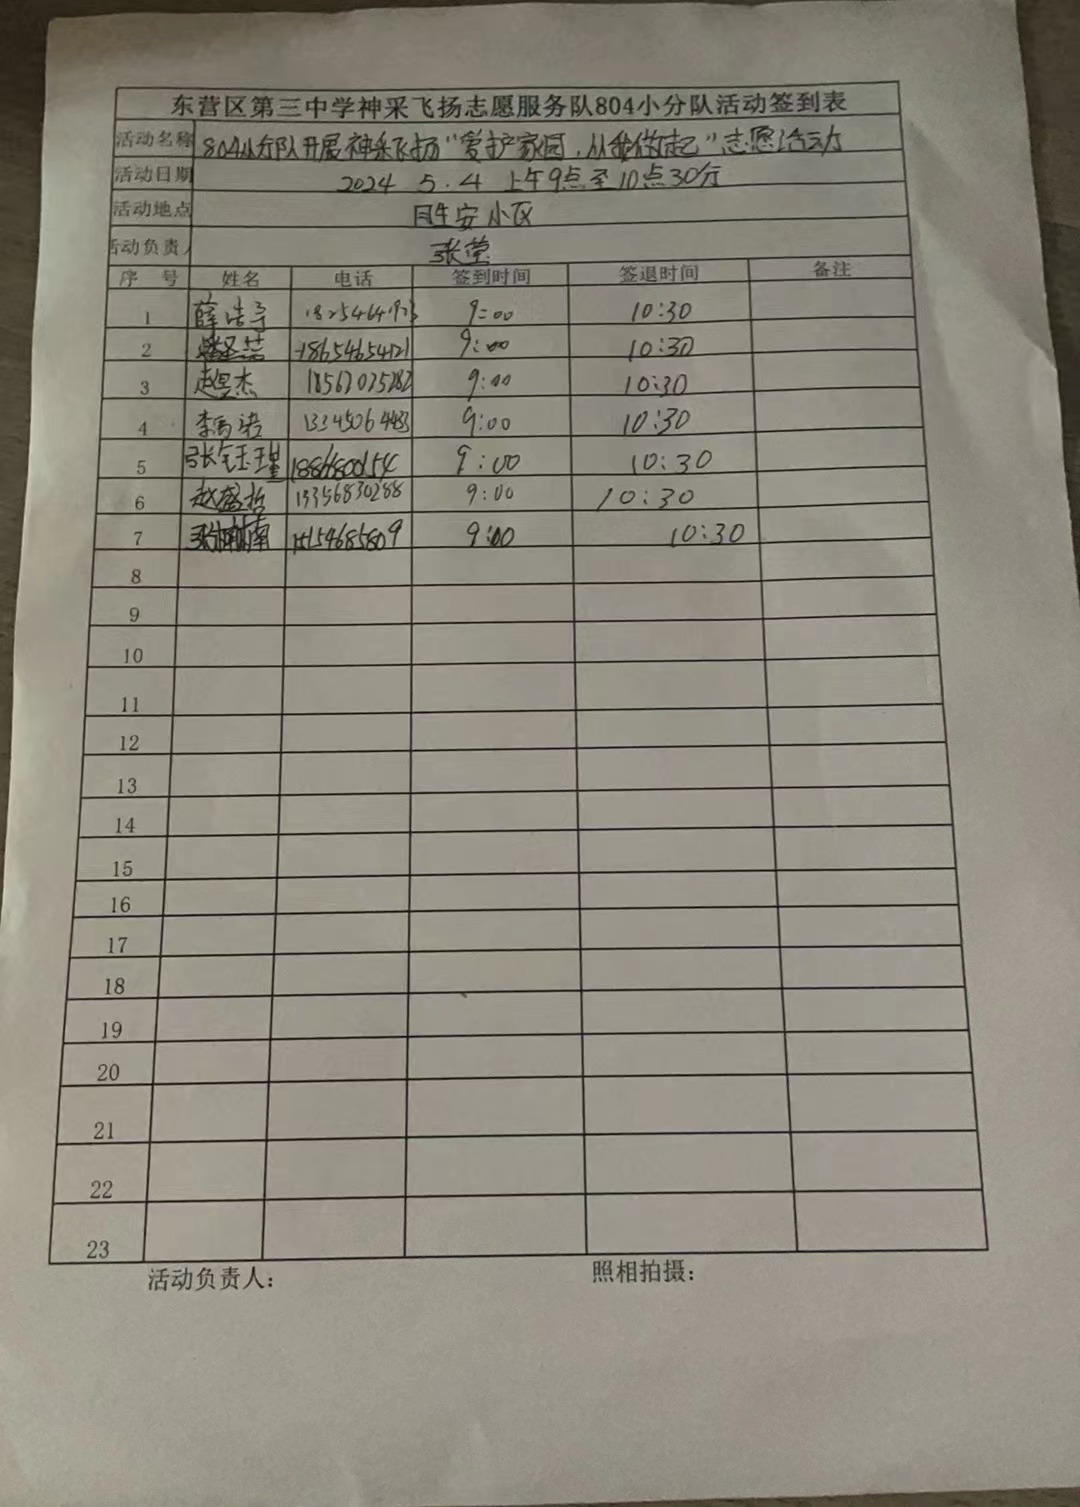 东营区第三中学神采飞扬志愿服务队804小分队活动签到表
活动名称 804小分队开展神采飞扬"爱护家园,从我做起"志愿活动
活动日期 2024 5.4 上午9点至10点30分
活动地点 安小区
活动负责人 张莹
序 号 姓名 电话 签到时间 签退时间 备注
1 薛浩宇 9:00 10:30
2 18654654121 9:00 10:30
3 赵昱杰 9:00 10:30
4 李雨诺 9:00 10:30
5 张钰瑾 9:00 10:30
6 赵盛哲 13356830288 9:00 10:30
7 9:00 10:30
8
9
10
11
12
13
14
15
16
17
18
19
20
21
22
23
活动负责人: 照相拍摄: